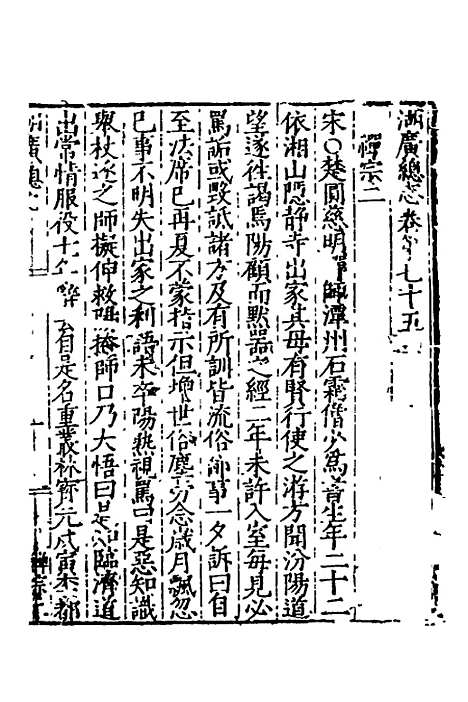 湖廣總志卷 七十五
禪宗二
宋○楚圓慈明禪師潭州石霜僧少爲書生年二十二
依湘山隱静寺出家其母有賢行使之游方聞汾陽道
望遂往謁焉陽顧而黙器之經二年未許入室毎見必
罵詬或毁詆諸方及有所訓皆流俗鄙事一夕訴曰自
至法席已再夏不蒙指示但增世俗塵勞念歲月飄忽
巳事不明失出家之利語未卒陽熟視罵曰是惡知識
舉杖逐之師擬伸救陽掩師口乃大悟曰是知臨濟道
出常情服役七年辭 自是名重叢林寳元戊寅李都
湖廣總